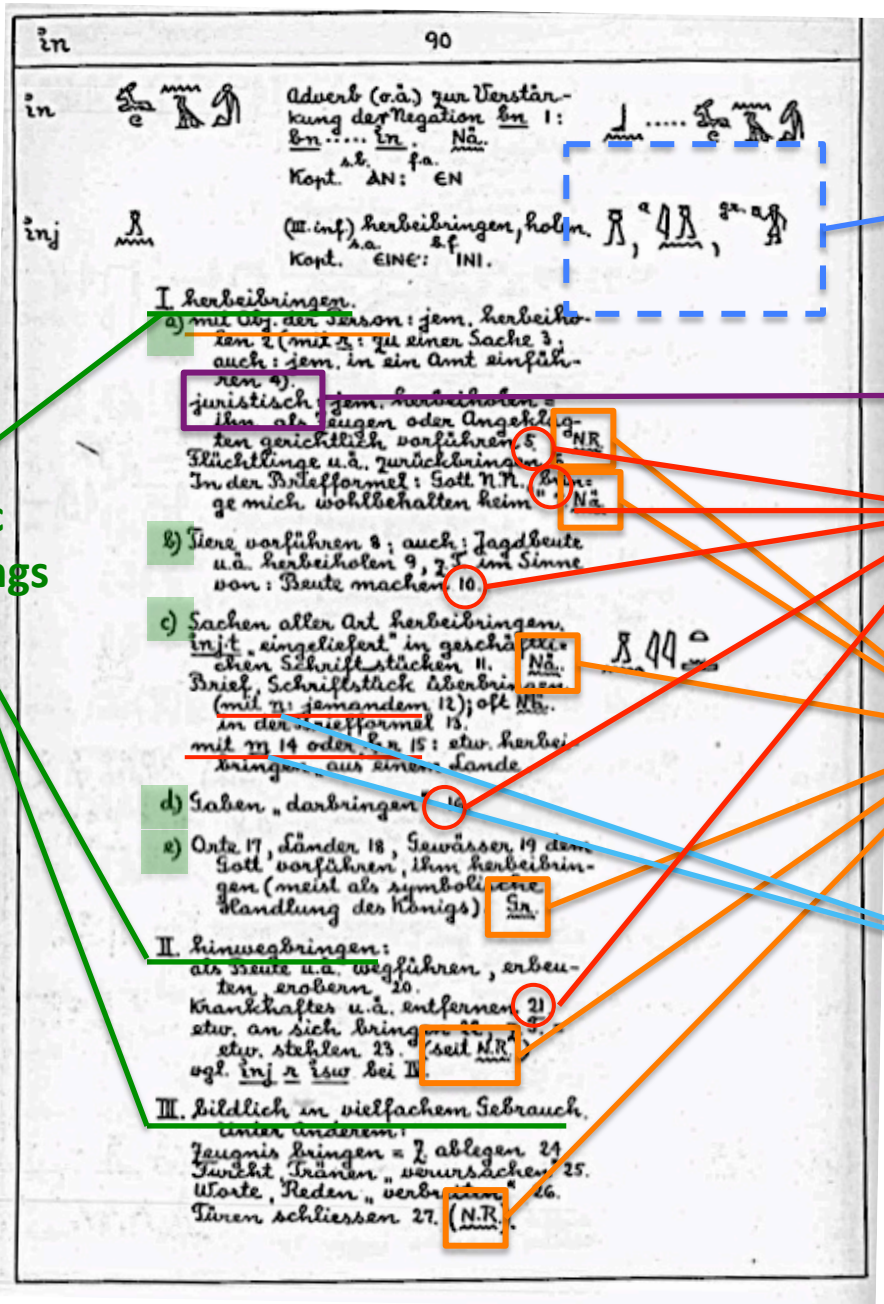 in 90
in Adverb (o.ä.) zur Verstär-
kung der Negation bn I:
bn ..... in. Nä.
s.b. f.a.
Kopt. ⲀⲚ: ⲈⲚ
inj (III. inf.) herbeibringen, holen.
s.a. b.f.
Kopt. ⲈⲒⲚⲈ: ⲒⲚⲒ.
a gr. a
I herbeibringen.
a) mit Obj. der Person: jem. herbeiho-
len 2 (mit r: zu einer Sache 3;
auch: jem. in ein Amt einfüh-
ren 4).
juristisch: jem. herbeiholen =
ihn als Zeugen oder Angeklag-
ten gerichtlich vorführen 5 NR
Flüchtlinge u.ä. zurückbringen
In der Briefformel: Gott N.N. „brin-
ge mich wohlbehalten heim" Nä.
b) Tiere vorführen 8; auch: Jagdbeute
u.ä. herbeiholen 9, z.T. im Sinne
von: Beute machen 10.
c) Sachen aller Art herbeibringen.
inj.t „eingeliefert" in geschäftli-
chen Schriftstücken 11. Nä.
Brief, Schriftstück überbringen
(mit n: jemandem 12); oft Nä.
in der Briefformel 13.
mit m 14 oder hr 15: etw. herbei-
bringen „aus einem Lande
d) Gaben „darbringen" 16
e) Orte 17, Länder 18, Gewässer 19 dem
Gott vorführen, ihm herbeibrin-
gen (meist als symbolische
Handlung des Königs) Gr.
II. hinwegbringen:
als Beute u.ä. wegführen, erbeu-
ten erobern 20.
Krankhaftes u.ä. entfernen 21
etw. an sich bringen
etw. stehlen 23. (seit N.R.)
vgl. inj r isw bei IV.
III. bildlich in vielfachem Gebrauch.
Unter Anderem:
Zeugnis bringen = Z. ablegen 24
Furcht, Tränen „verursachen" 25.
Worte, Reden „verbreiten" 26.
Türen schliessen 27. (N.R.).